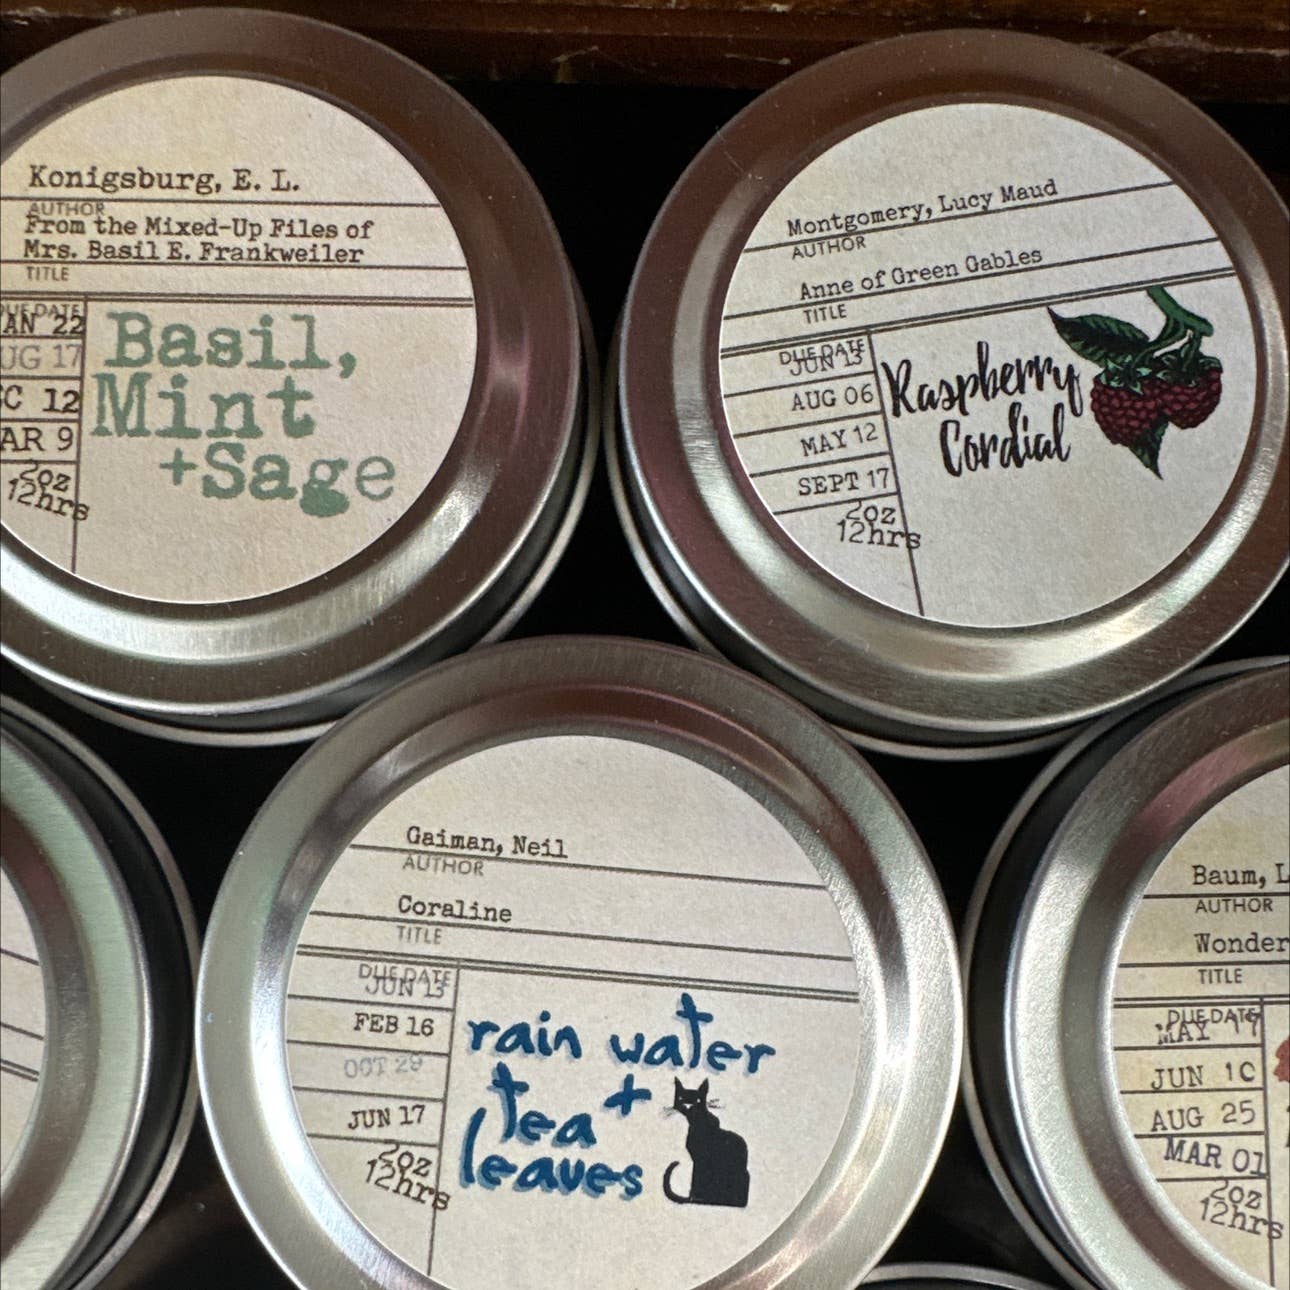 Konigsburg, E. L.
AUTHOR
From the Mixed-Up Files of
Mrs. Basil E. Frankweiler
TITLE
DUE DATE
AN 22
UG 17
C 12
AR 9
2oz
12hrs
Basil,
Mint
+Sage
Montgomery, Lucy Maud
AUTHOR
Anne of Green Gables
TITLE
DUE DATE
JUN 13
AUG 06
MAY 12
SEPT 17
2oz
12hrs
Raspberry
Cordial
Gaiman, Neil
AUTHOR
Coraline
TITLE
DUE DATE
JUN 13
FEB 16
OCT 29
JUN 17
2oz
12hrs
rain water
+
tea
leaves
Baum, L
AUTHOR
Wonder
TITLE
DUE DATE
MAY 17
JUN 10
AUG 25
MAR 01
2oz
12hrs